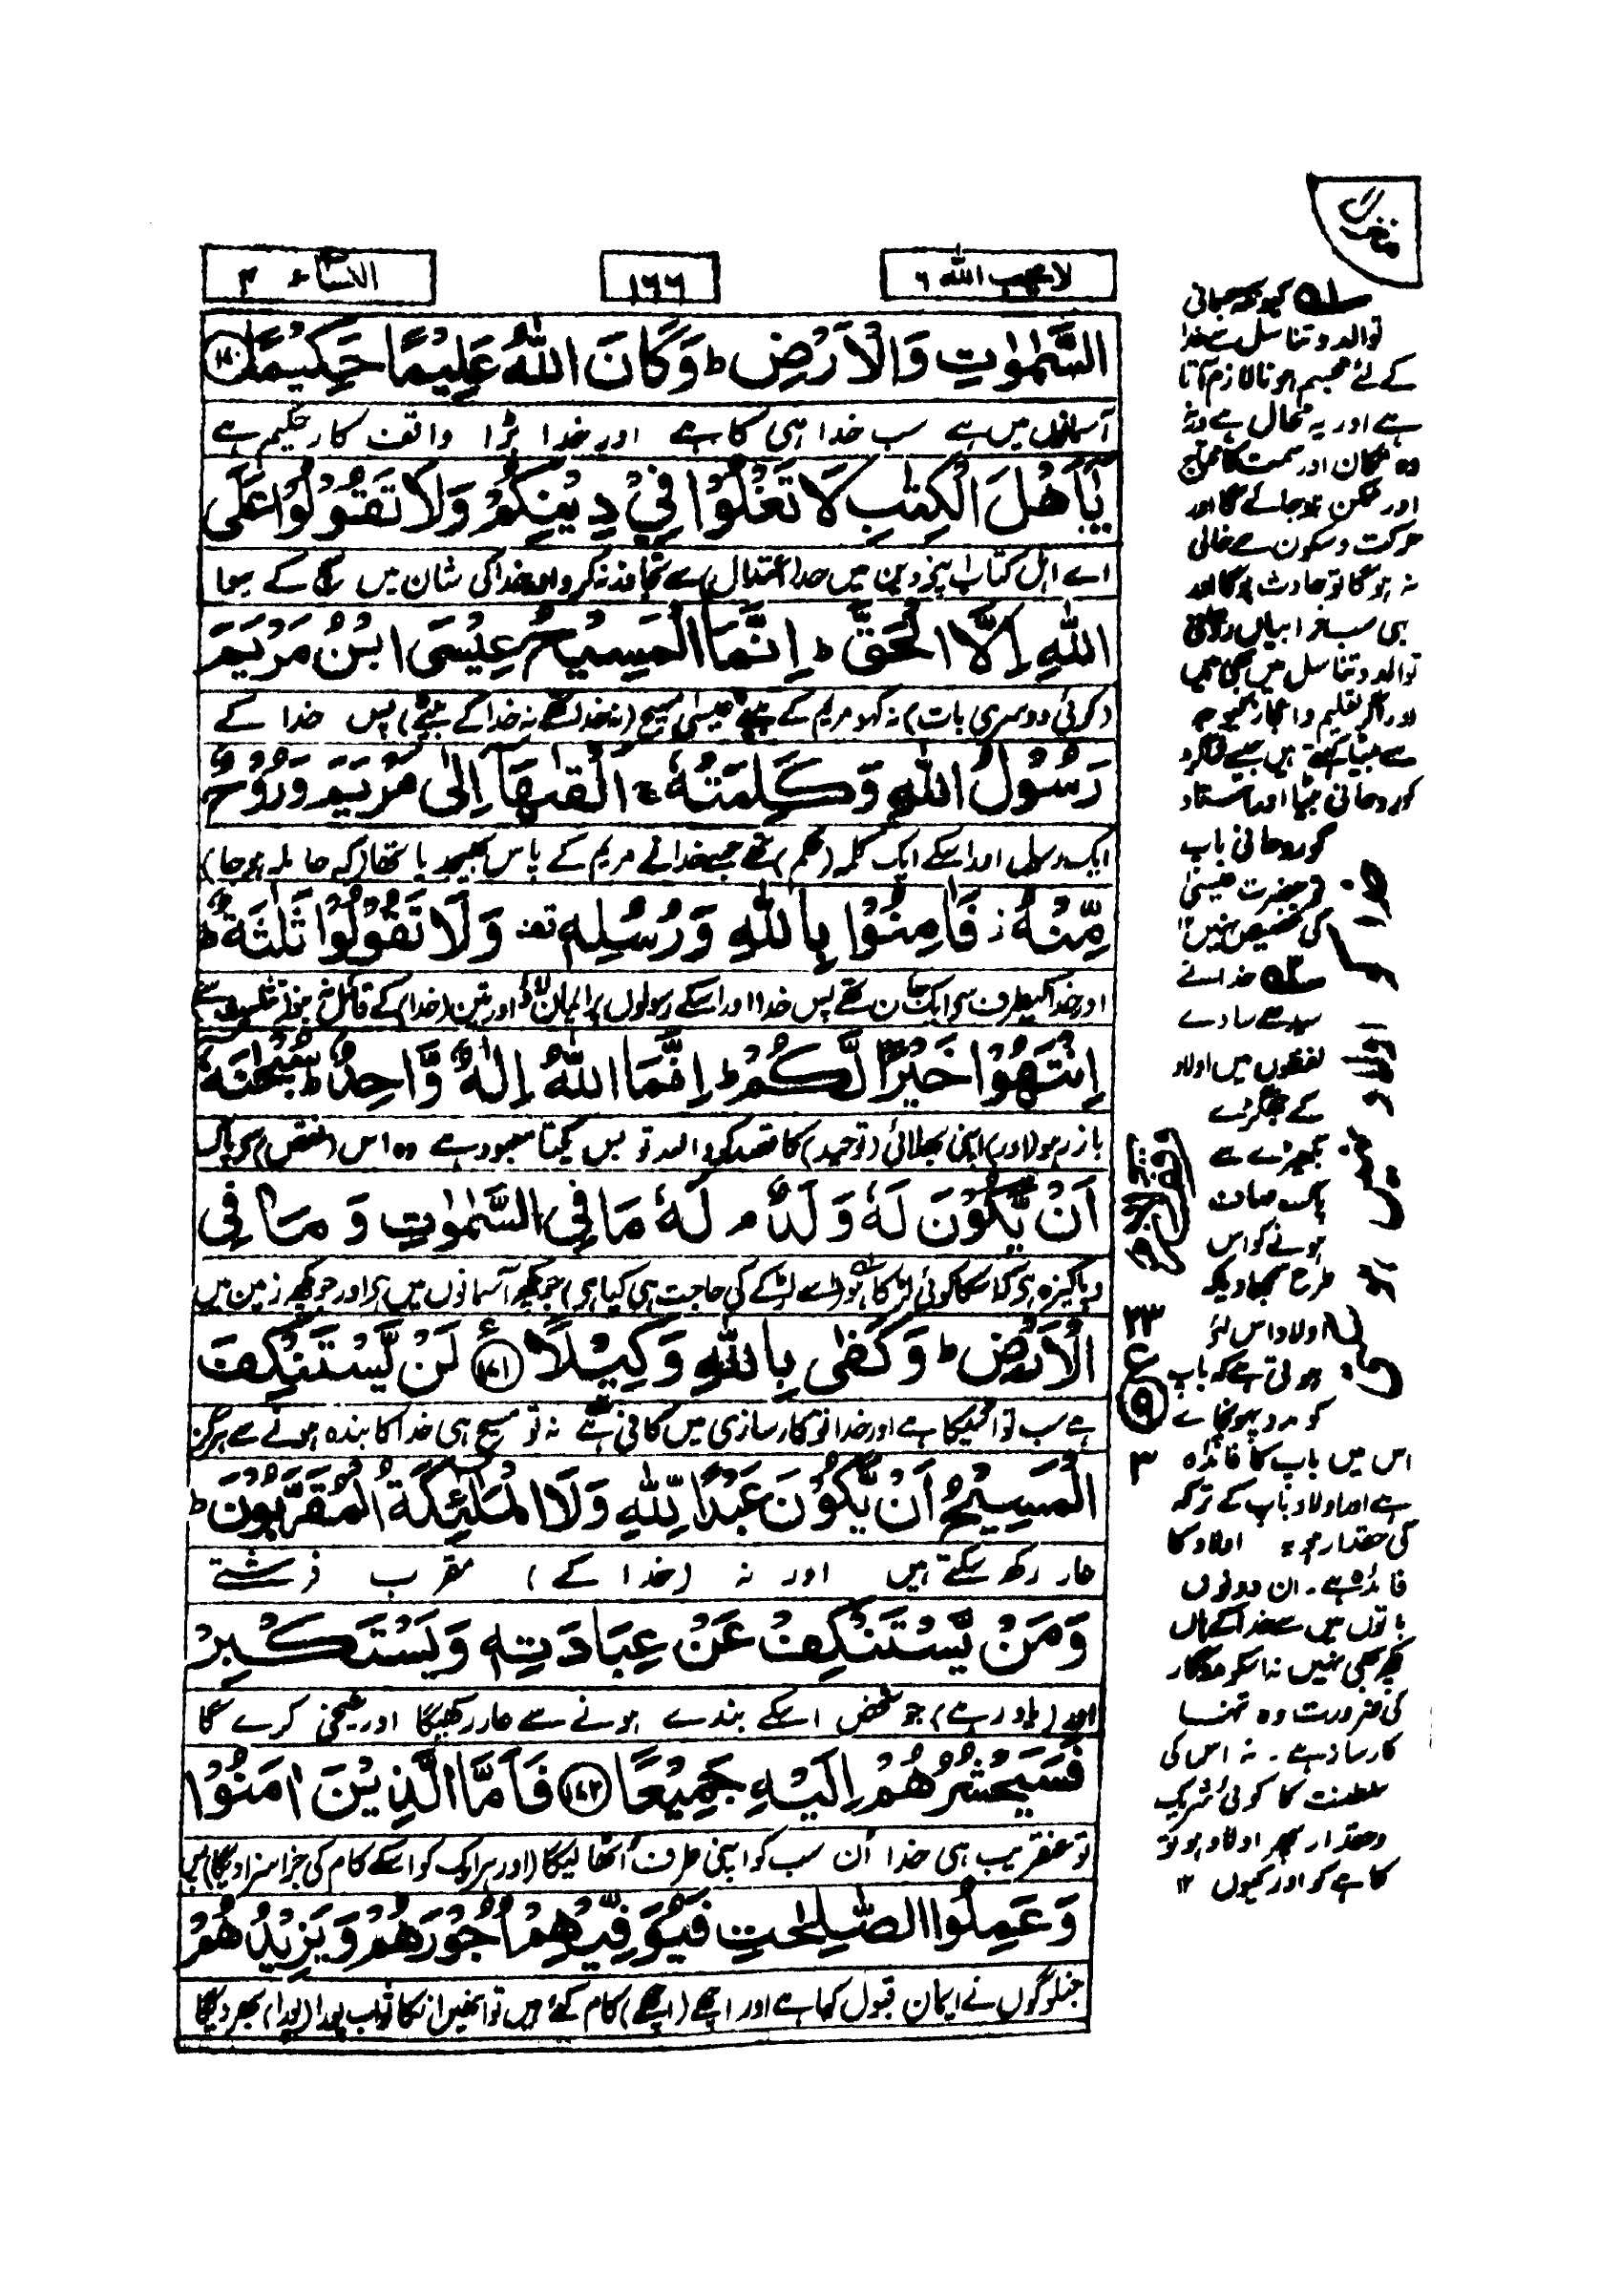 لا یحب الله ۶
۱۶۶
النساء ۴
السَّمٰوٰتِ وَالْاَرْضِ ؕ وَكَانَ اللّٰهُ عَلِيْمًا حَكِيْمًا ۱۷۰
آسمانوں میں ہے سب خدا ہی کا ہے اور خدا بڑا واقف کار حکیم ہے
يٰۤاَهْلَ الْكِتٰبِ لَا تَغْلُوْا فِيْ دِيْنِكُمْ وَلَا تَقُوْلُوْا عَلَى
اے اہل کتاب اپنے دین میں حد (اعتدال) سے تجاوز نہ کرو اور خدا کی شان میں سچ کے سوا
اللّٰهِ اِلَّا الْحَقَّ ؕ اِنَّمَا الْمَسِيْحُ عِيْسَى ابْنُ مَرْيَمَ
(کوئی دوسری بات) نہ کہو مریم کے بیٹے عیسیٰ مسیح (نہ خدا تھے نہ خدا کے بیٹے) پس خدا کے
رَسُوْلُ اللّٰهِ وَكَلِمَتُهٗ ۚ اَلْقٰىهَاۤ اِلٰى مَرْيَمَ وَرُوْحٌ
ایک رسول اور اسکے ایک کلمہ (حکم) تھے جسے خدا نے مریم کے پاس بھیجدیا تھا (کہ حاملہ ہو جا)
مِّنْهُ ؗ فَاٰمِنُوْا بِاللّٰهِ وَرُسُلِهٖ ۫ وَلَا تَقُوْلُوْا ثَلٰثَةٌ ؕ
اور خدا کیطرف سے ایک جان تھے پس خدا اور اسکے رسولوں پر ایمان لاؤ اور تین (خدا) کے قائل نہ بنو
اِنْتَهُوْا خَيْرًا لَّكُمْ ؕ اِنَّمَا اللّٰهُ اِلٰهٌ وَّاحِدٌ ؕ سُبْحٰنَهٗۤ
باز رہو (اور) اپنی بھلائی (توحید) کا قصد کرو اللہ تو بس یکتا معبود ہے وہ اس (نقص) سے پاک
اَنْ يَّكُوْنَ لَهٗ وَلَدٌ ۘ لَهٗ مَا فِي السَّمٰوٰتِ وَمَا فِي
و پاکیزہ ہے کہ اسکا کوئی لڑکا ہو (اسے لڑکے کی حاجت ہی کیا ہے) جو کچھ آسمانوں میں ہے اور جو کچھ زمین میں
الْاَرْضِ ؕ وَكَفٰى بِاللّٰهِ وَكِيْلًا ۱۷۱ لَنْ يَّسْتَنْكِفَ
ہے سب تو اسیکا ہے اور خدا تو کارسازی میں کافی ہے نہ تو مسیح ہی خدا کا بندہ ہونے سے ہرگز
الْمَسِيْحُ اَنْ يَّكُوْنَ عَبْدًا لِّلّٰهِ وَلَا الْمَلٰٓئِكَةُ الْمُقَرَّبُوْنَ ؕ
عار رکھ سکتے ہیں اور نہ (خدا کے) مقرب فرشتے
وَمَنْ يَّسْتَنْكِفْ عَنْ عِبَادَتِهٖ وَيَسْتَكْبِرْ
اور (یاد رہے) جو شخص اسکے بندے ہونے سے عار رکھیگا اور شیخی کرے گا
فَسَيَحْشُرُهُمْ اِلَيْهِ جَمِيْعًا ۱۷۲ فَاَمَّا الَّذِيْنَ اٰمَنُوْا
تو عنقریب ہی خدا اُن سب کو اپنی طرف اُٹھا لیگا (اور ہر ایک کو اسکے کام کی جزا سزا دیگا) پس
وَعَمِلُوا الصّٰلِحٰتِ فَيُوَفِّيْهِمْ اُجُوْرَهُمْ وَيَزِيْدُهُمْ
جن لوگوں نے ایمان قبول کیا ہے اور اچھے (اچھے) کام کئے ہیں تو انھیں انکا ثواب پورا (پورا) بھر دیگا
منزل
۱ کیونکہ جسمانی
توالد و تناسل سے خدا
کے لئے مجسم ہونا لازم آتا
ہے اور یہ محال ہے ورنہ
وہ مکان اور سمت کا محتاج
اور ممکن ہو جائے گا اور
حرکت و سکون سے خالی
نہ ہو گا تو حادث ہو گا اور
یہی سب خرابیاں روحانی
توالد و تناسل میں بھی ہیں
اور اگر تعلیم و
سے بیٹا کہتے ہیں جیسے شاگرد
کو روحانی بیٹا اور استاد
کو روحانی باپ
تو حضرت عیسیٰ
کی تخصیص نہیں ۱۲
۲ خدا نے
سیدھے سادے
لفظوں میں اولاد
کے جھگڑے
بکھیڑے سے
پاک صاف
ہونے کو اس
طرح سمجھا دیا کہ
اولاد اس لئے
ہوتی ہے کہ باپ
کو مدد پہونچائے
اس میں باپ کا فائدہ
ہے اور اولاد باپ کے ترکہ
کی حقدار ہو یہ اولاد کا
فائدہ ہے ۔ ان دونوں
باتوں میں سے خدا کے ہاں
کچھ بھی نہیں نہ اسکو مددگار
کی ضرورت وہ تنہا
کارساز ہے ۔ نہ اس کی
سلطنت کا کوئی شریک
و حقدار پھر اولاد ہو تو
کا ہے کو اور کیوں ۱۲
۲۳
ع
۹
۳